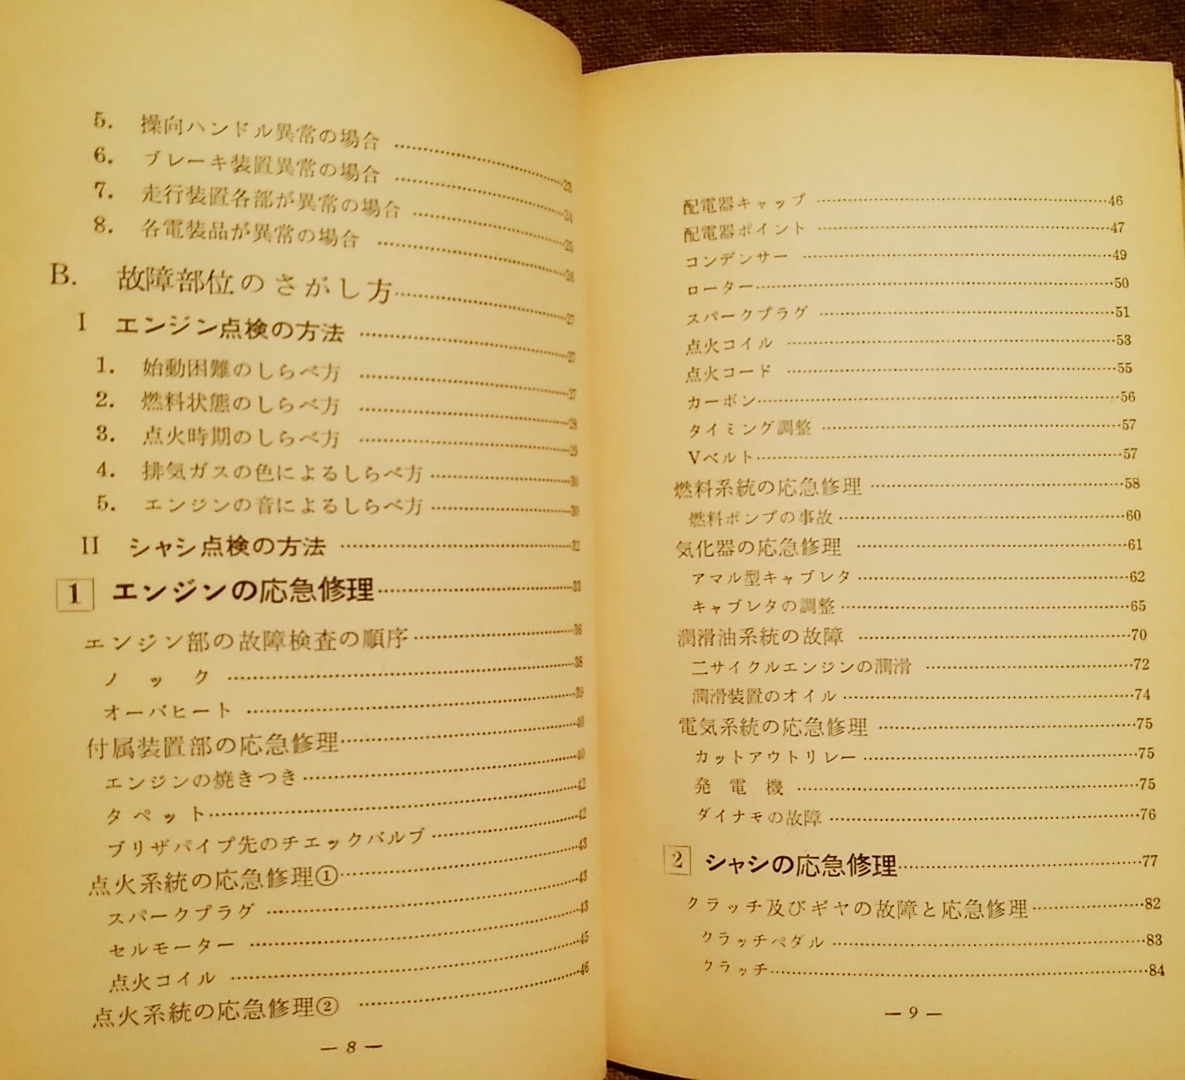 5. 操向ハンドル異常の場合 ……… 23
6. ブレーキ装置異常の場合 ……… 24
7. 走行装置各部が異常の場合 ……… 25
8. 各電装品が異常の場合 ……… 26
B. 故障部位のさがし方 ……… 27
I エンジン点検の方法 ……… 27
1. 始動困難のしらべ方 ……… 27
2. 燃料状態のしらべ方 ……… 28
3. 点火時期のしらべ方 ……… 29
4. 排気ガスの色によるしらべ方 ……… 30
5. エンジンの音によるしらべ方 ……… 30
II シャシ点検の方法 ……… 32
1 エンジンの応急修理 ……… 33
エンジン部の故障検査の順序 ……… 36
ノック ……… 38
オーバヒート ……… 39
付属装置部の応急修理 ……… 40
エンジンの焼きつき ……… 40
タペット ……… 42
ブリザパイプ先のチェックバルブ ……… 42
点火系統の応急修理① ……… 43
スパークプラグ ……… 43
セルモーター ……… 43
点火コイル ……… 45
点火系統の応急修理② ……… 46
― 8 ―
配電器キャップ ……… 46
配電器ポイント ……… 47
コンデンサー ……… 49
ローター ……… 50
スパークプラグ ……… 51
点火コイル ……… 53
点火コード ……… 55
カーボン ……… 56
タイミング調整 ……… 57
Vベルト ……… 57
燃料系統の応急修理 ……… 58
燃料ポンプの事故 ……… 60
気化器の応急修理 ……… 61
アマル型キャブレタ ……… 62
キャブレタの調整 ……… 65
潤滑油系統の故障 ……… 70
二サイクルエンジンの潤滑 ……… 72
潤滑装置のオイル ……… 74
電気系統の応急修理 ……… 75
カットアウトリレー ……… 75
発電機 ……… 75
ダイナモの故障 ……… 76
2 シャシの応急修理 ……… 77
クラッチ及びギヤの故障と応急修理 ……… 82
クラッチペダル ……… 83
クラッチ ……… 84
― 9 ―